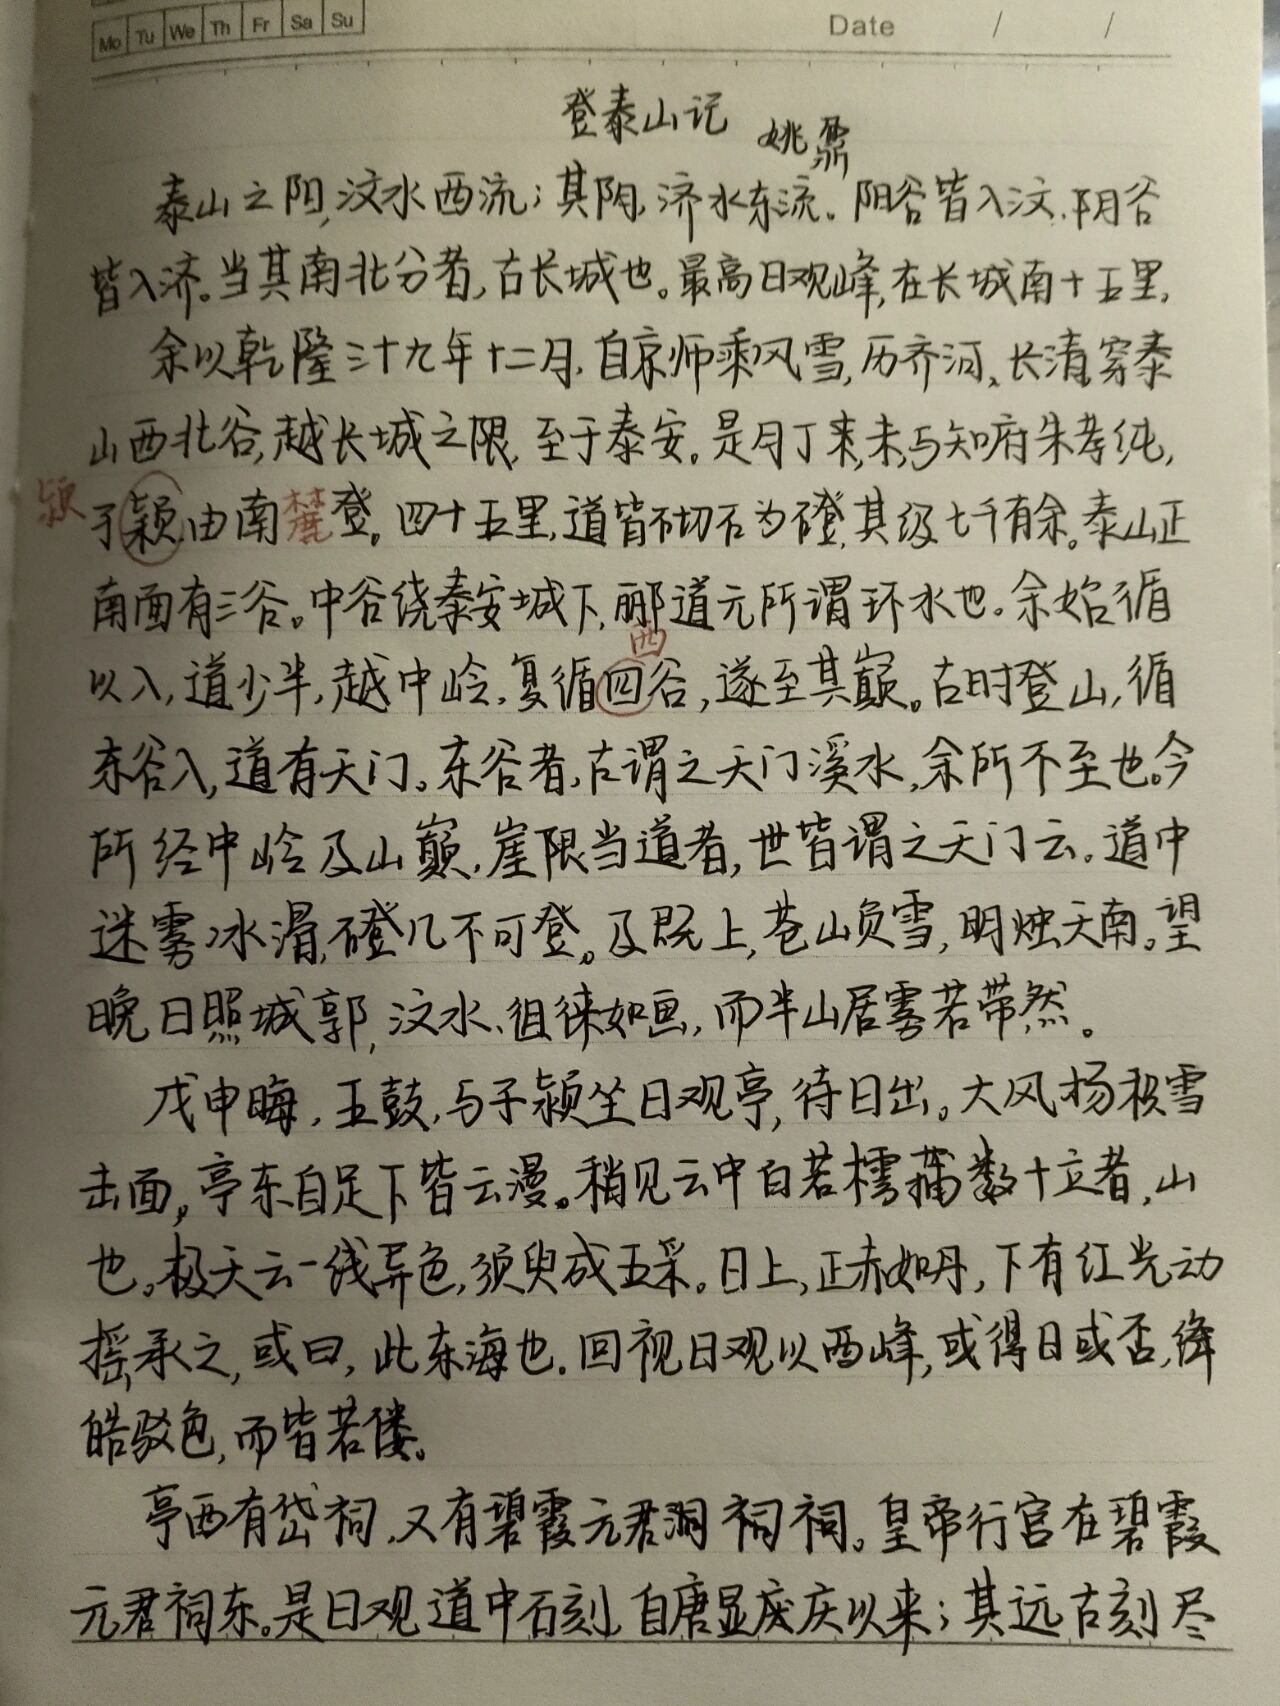 Mo Tu We Th Fr Sa Su Date / /
登泰山记 姚鼐
泰山之阳,汶水西流;其阴,济水东流。阳谷皆入汶,阴谷
皆入济。当其南北分者,古长城也。最高日观峰,在长城南十五里,
余以乾隆三十九年十二月,自京师乘风雪,历齐河、长清,穿泰
山西北谷,越长城之限,至于泰安。是月丁未,未,与知府朱孝纯,
颍
于颖由南麓登。四十五里,道皆砌石为磴,其级七千有余。泰山正
南面有三谷。中谷绕泰安城下,郦道元所谓环水也。余始循
西
以入,道少半,越中岭,复循四谷,遂至其巅。古时登山,循
东谷入,道有天门。东谷者,古谓之天门溪水,余所不至也。今
所经中岭及山巅,崖限当道者,世皆谓之天门云。道中
迷雾冰滑,磴几不可登。及既上,苍山负雪,明烛天南。望
晚日照城郭,汶水、徂徕如画,而半山居雾若带然。
戊申晦,五鼓,与子颍坐日观亭,待日出。大风扬积雪
击面,亭东自足下皆云漫。稍见云中白若樗蒱数十立者,山
也。极天云一线异色,须臾成五采。日上,正赤如丹,下有红光动
摇承之,或曰,此东海也。回视日观以西峰,或得日或否,绛
皓驳色,而皆若偻。
亭西有岱祠,又有碧霞元君祠祠。皇帝行宫在碧霞
元君祠东。是日观道中石刻,自唐显庆以来;其远古刻尽